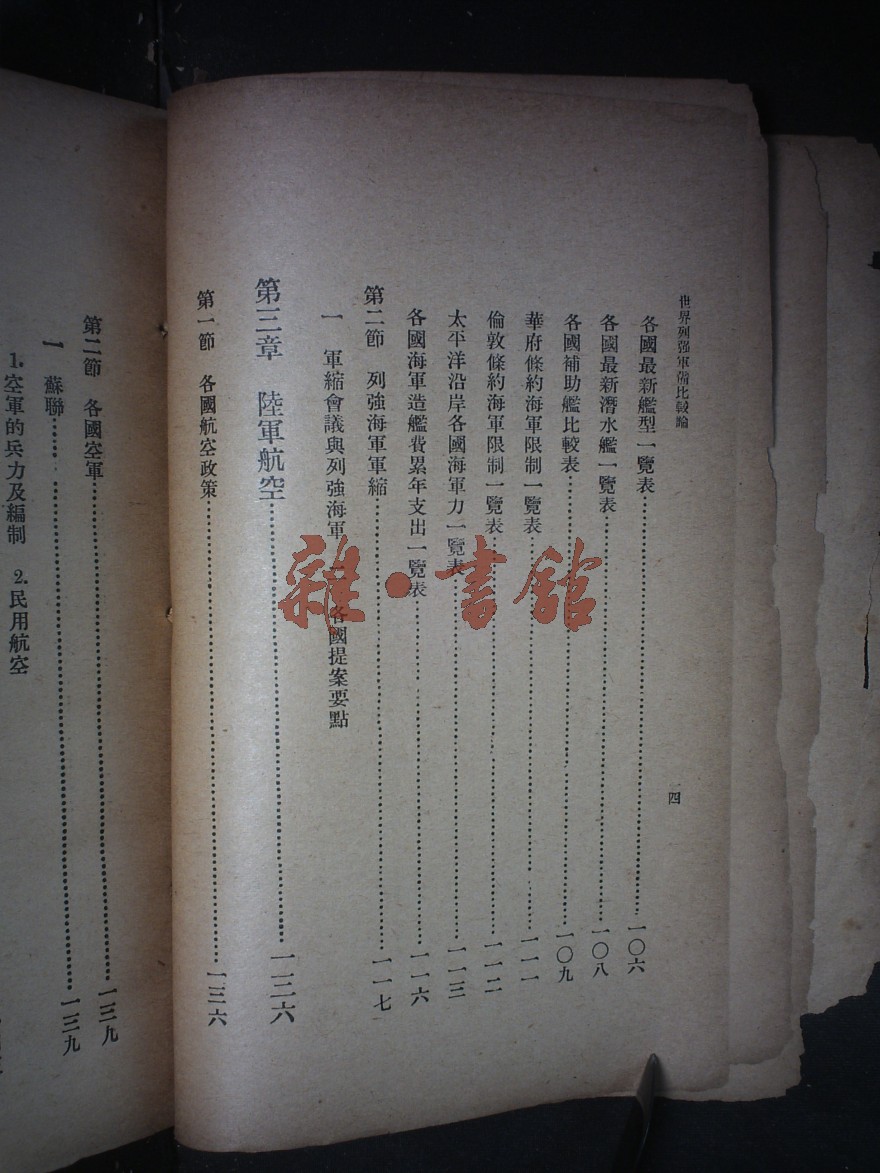 世界列强軍備比較論
四
各國最新艦型一覽表……一〇六
各國最新潛水艦一覽表……一〇八
各國補助艦比較表……一〇九
華府條約海軍限制一覽表……一一一
倫敦條約海軍限制一覽表……一一二
太平洋沿岸各國海軍力一覽表……一一三
各國海軍造艦費累年支出一覽表……一一六
第二節 列強海軍軍縮……一一七
一 軍縮會議與列強海軍 各國提案要點
第三章 陸軍航空……一三六
第一節 各國航空政策……一三六
第二節 各國空軍……一三九
一 蘇聯……一三九
1.空軍的兵力及編制 2.民用航空
雜·書館